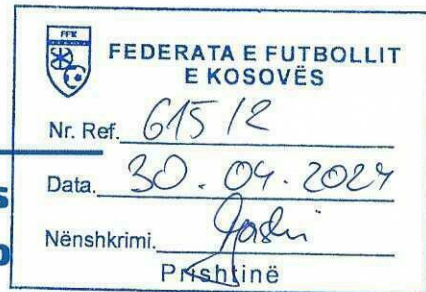 FFK
FEDERATA E FUTBOLLIT
E KOSOVËS
Nr. Ref. 615/2
Data. 30.04.2024
Nënshkrimi.
Prishtinë